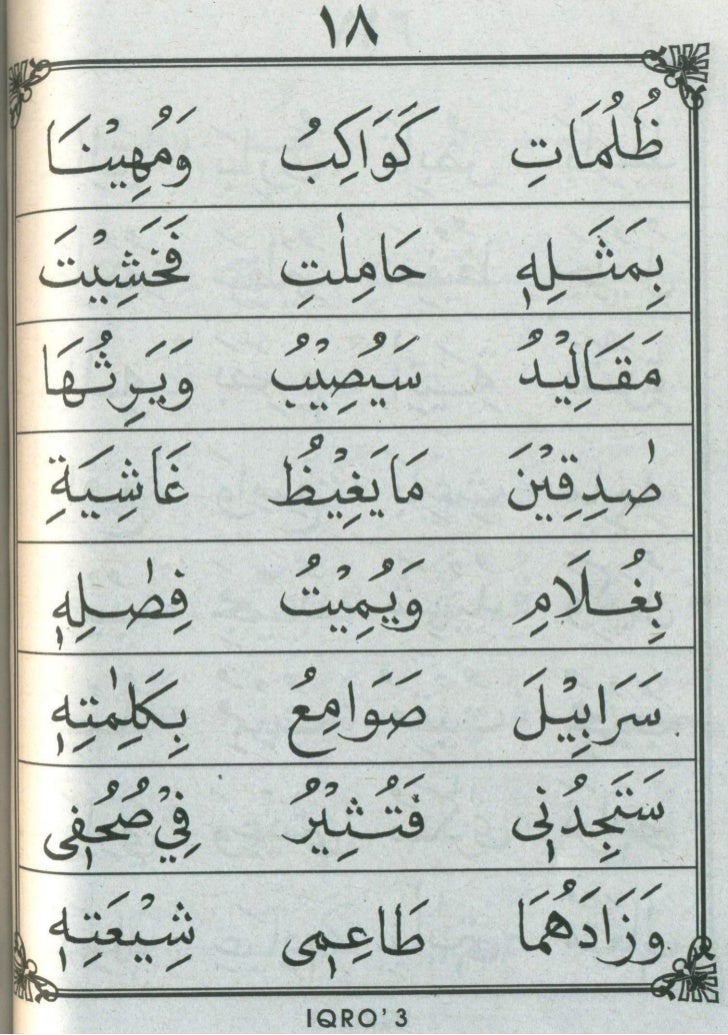 ١٨
ظُلُمَاتِ كَوَاكِبُ وَمُهِيْنَا
بِمَثَلِهٖ حَامِلٰتِ فَخَشِيْتَ
مَقَالِيْدُ سَيُصِيْبُ وَيَرِثُهَا
صٰدِقِيْنَ مَايَغِيْظُ غَاشِيَةِ
بِغُلَامِ وَيُمِيْتُ فِصٰلِهٖ
سَرَابِيْلَ صَوَامِعُ بِكَلِمٰتِهٖ
سَتَجِدُنِٖى فَتُثِيْرُ فِيْ صُحُفِٖى
وَزَادَهُمَا طَاعِمِٖى شِيْعَتِهٖ
IQRO'3